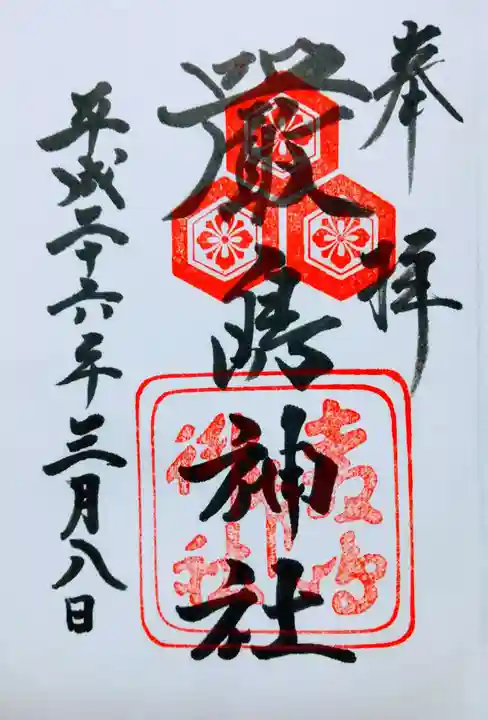 奉拝
嚴島神社
平成二十六年三月八日
嚴島
神社